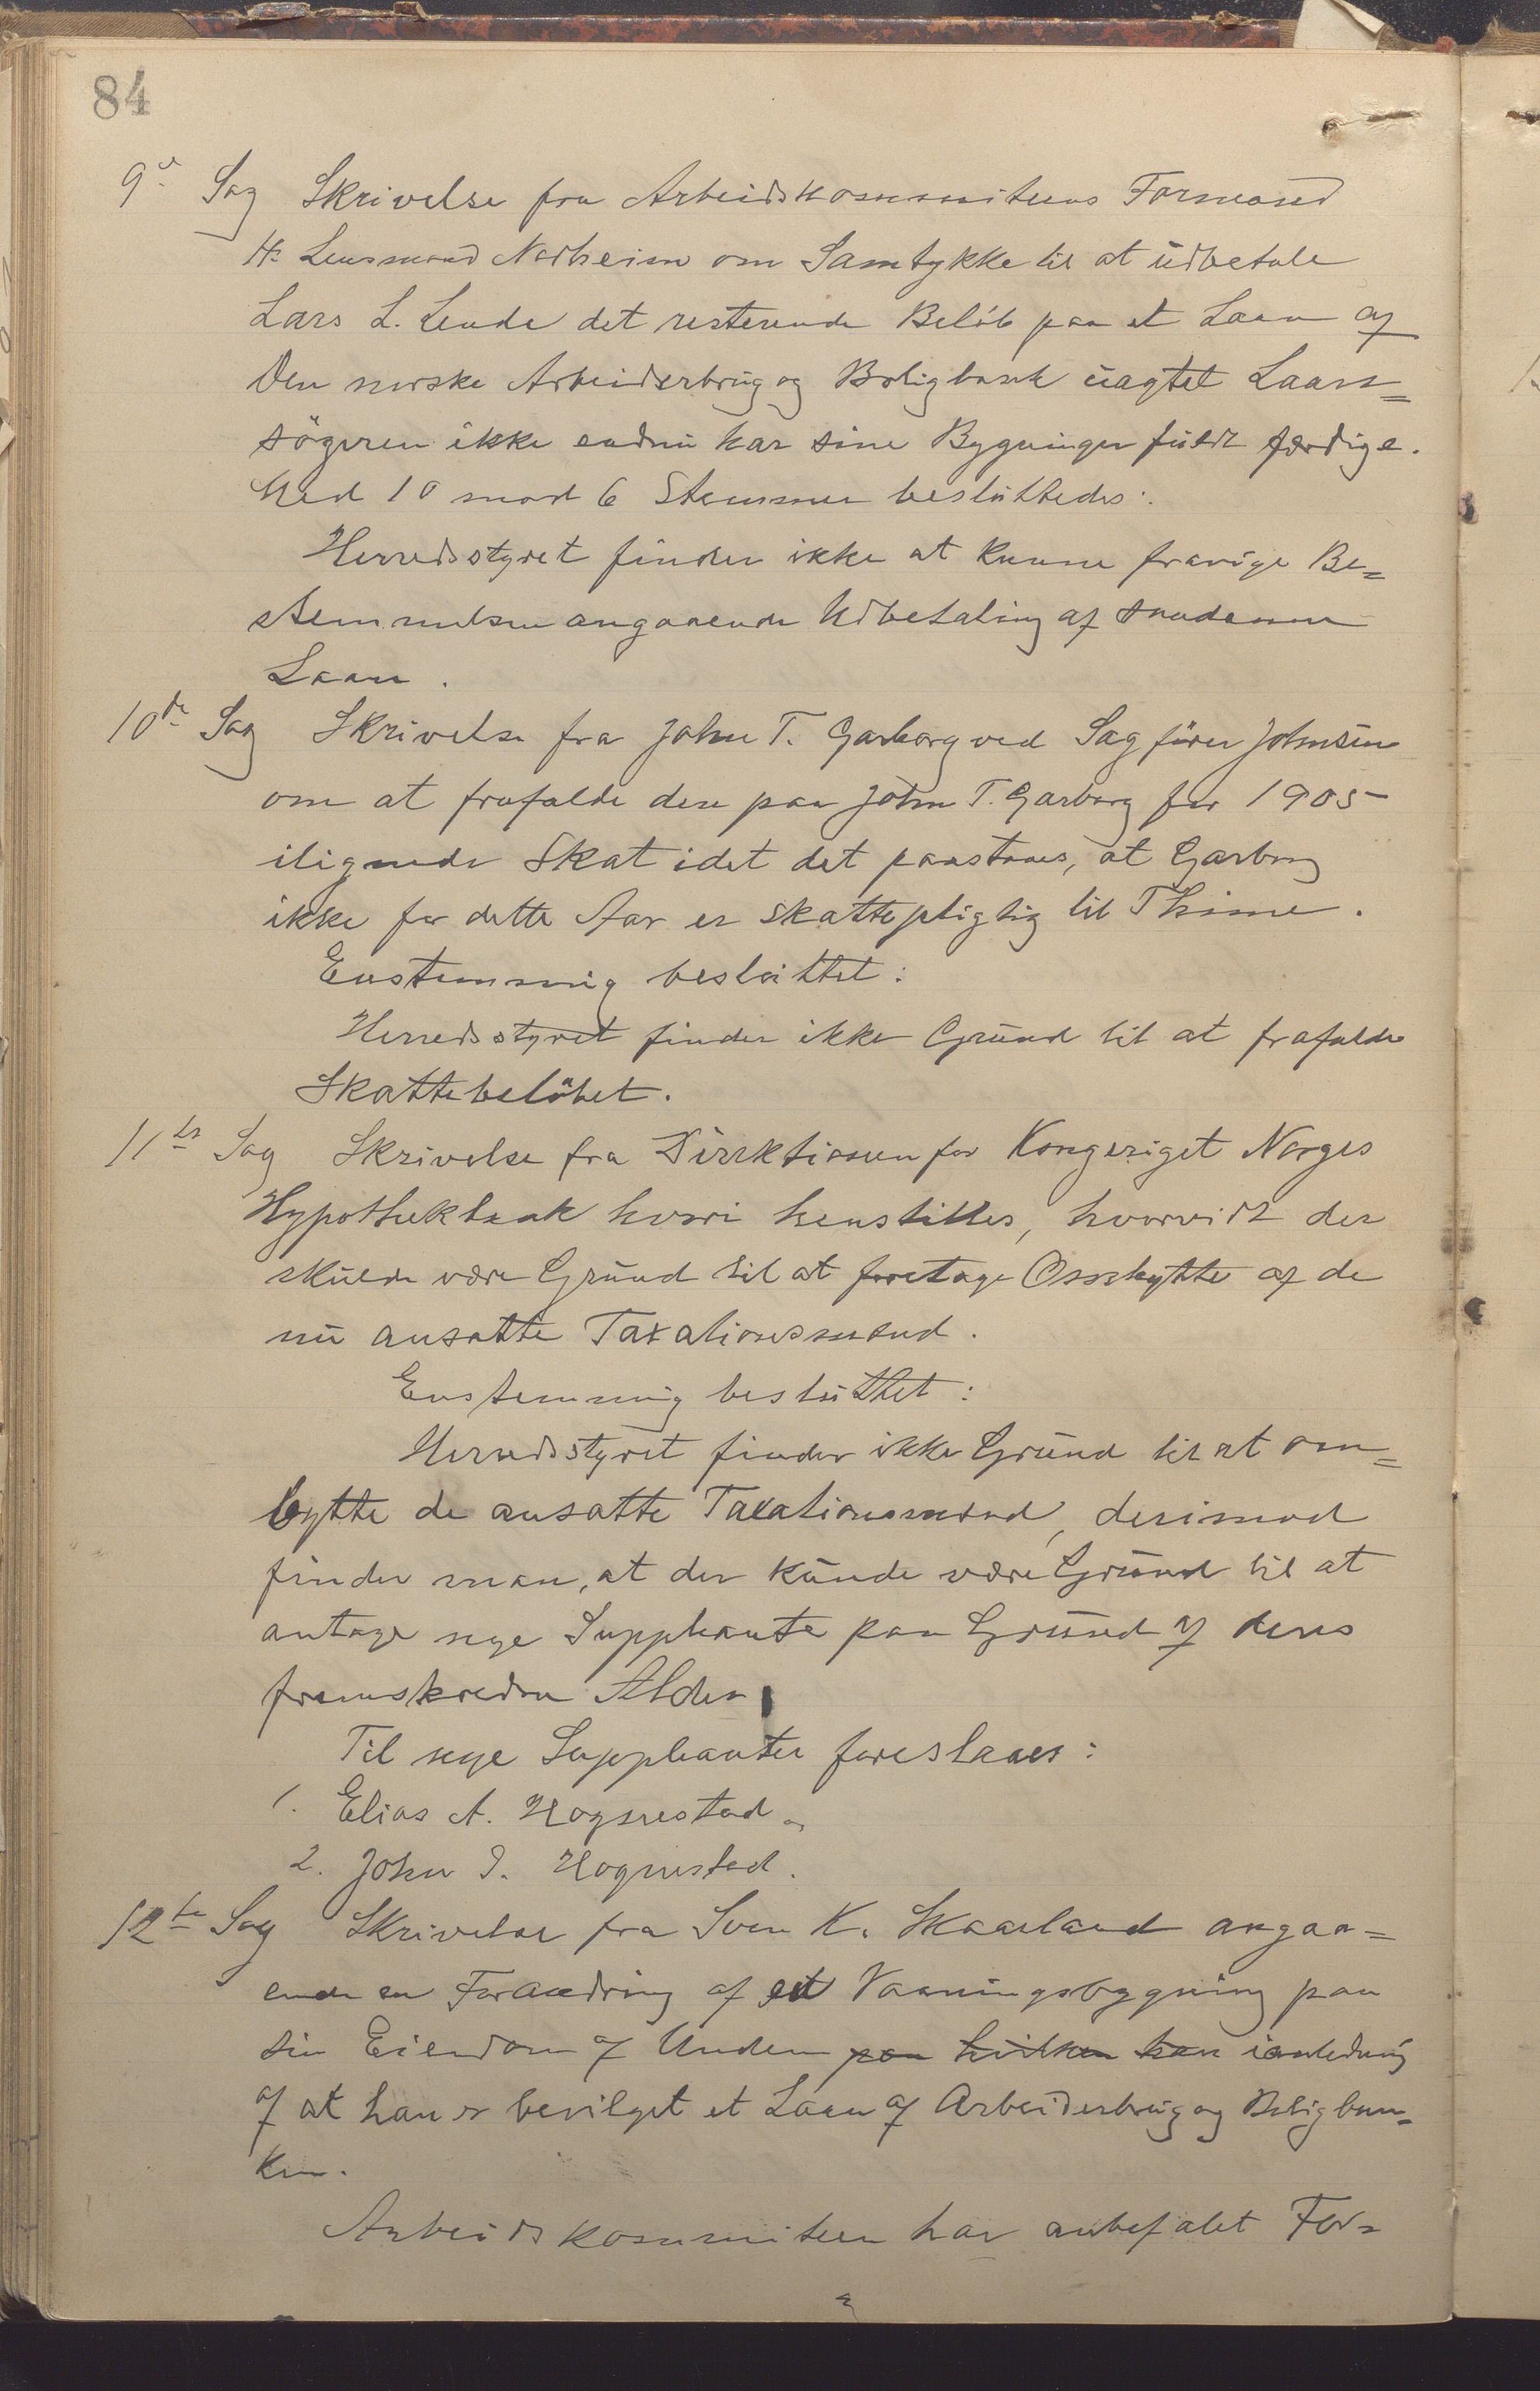 84
9de Sag Skrivelse fra Arbeidskommiteens Formand
Hr. Lensmand Norheim om Samtykke til at udbetale
Lars L. Lende det resterende Beløb paa et Laan af
Den norske Arbeiderbrug og Boligbank uagtet Laan=
søgeren ikke endnu har sine Bygninger fuldt færdige.
Med 10 mod 6 Stemmer besluttedes:
Herredsstyret finder ikke at kunne fravige Be=
stemmelsen angaaende Udbetaling af saadanne
Laan.
10de Sag Skrivelse fra John T. Garborg ved Sagfører Johnsen
om at frafalde den paa John T. Garborg for 1905
ilignede Skat idet det paastaaes, at Garborg
ikke for dette Aar er skattepligtig til Thime.
Enstemmig besluttet:
Herredsstyret finder ikke Grund til at frafalde
Skattebeløbet.
11te Sag Skrivelse fra Direktionen for Kongeriget Norges
Hypothekbank hvori henstilles, hvorvidt der
skulde være Grund til at foretage Ombytte af de
nu ansatte Taxationsmænd.
Enstemmig besluttet:
Herredsstyret finder ikke Grund til at om=
bytte de ansatte Taxationsmænd, derimod
finder man, at der kunde være Grund til at
antage nye Suppleanter paa Grund af deres
fremskredne Alder.
Til nye Suppleanter foreslaaes:
1. Elias A. Hognestad og
2. John I. Hognestad.
12te Sag Skrivelse fra Sven K. Skaarland angaa=
ende en Forandring af et Vaaningsbygning paa
sin Eiendom af Undem paa hvilken han ianledning
af at han er bevilget et Laan af Arbeiderbrug og Boligban=
ken.
Arbeidskommiteen har anbefalet For=